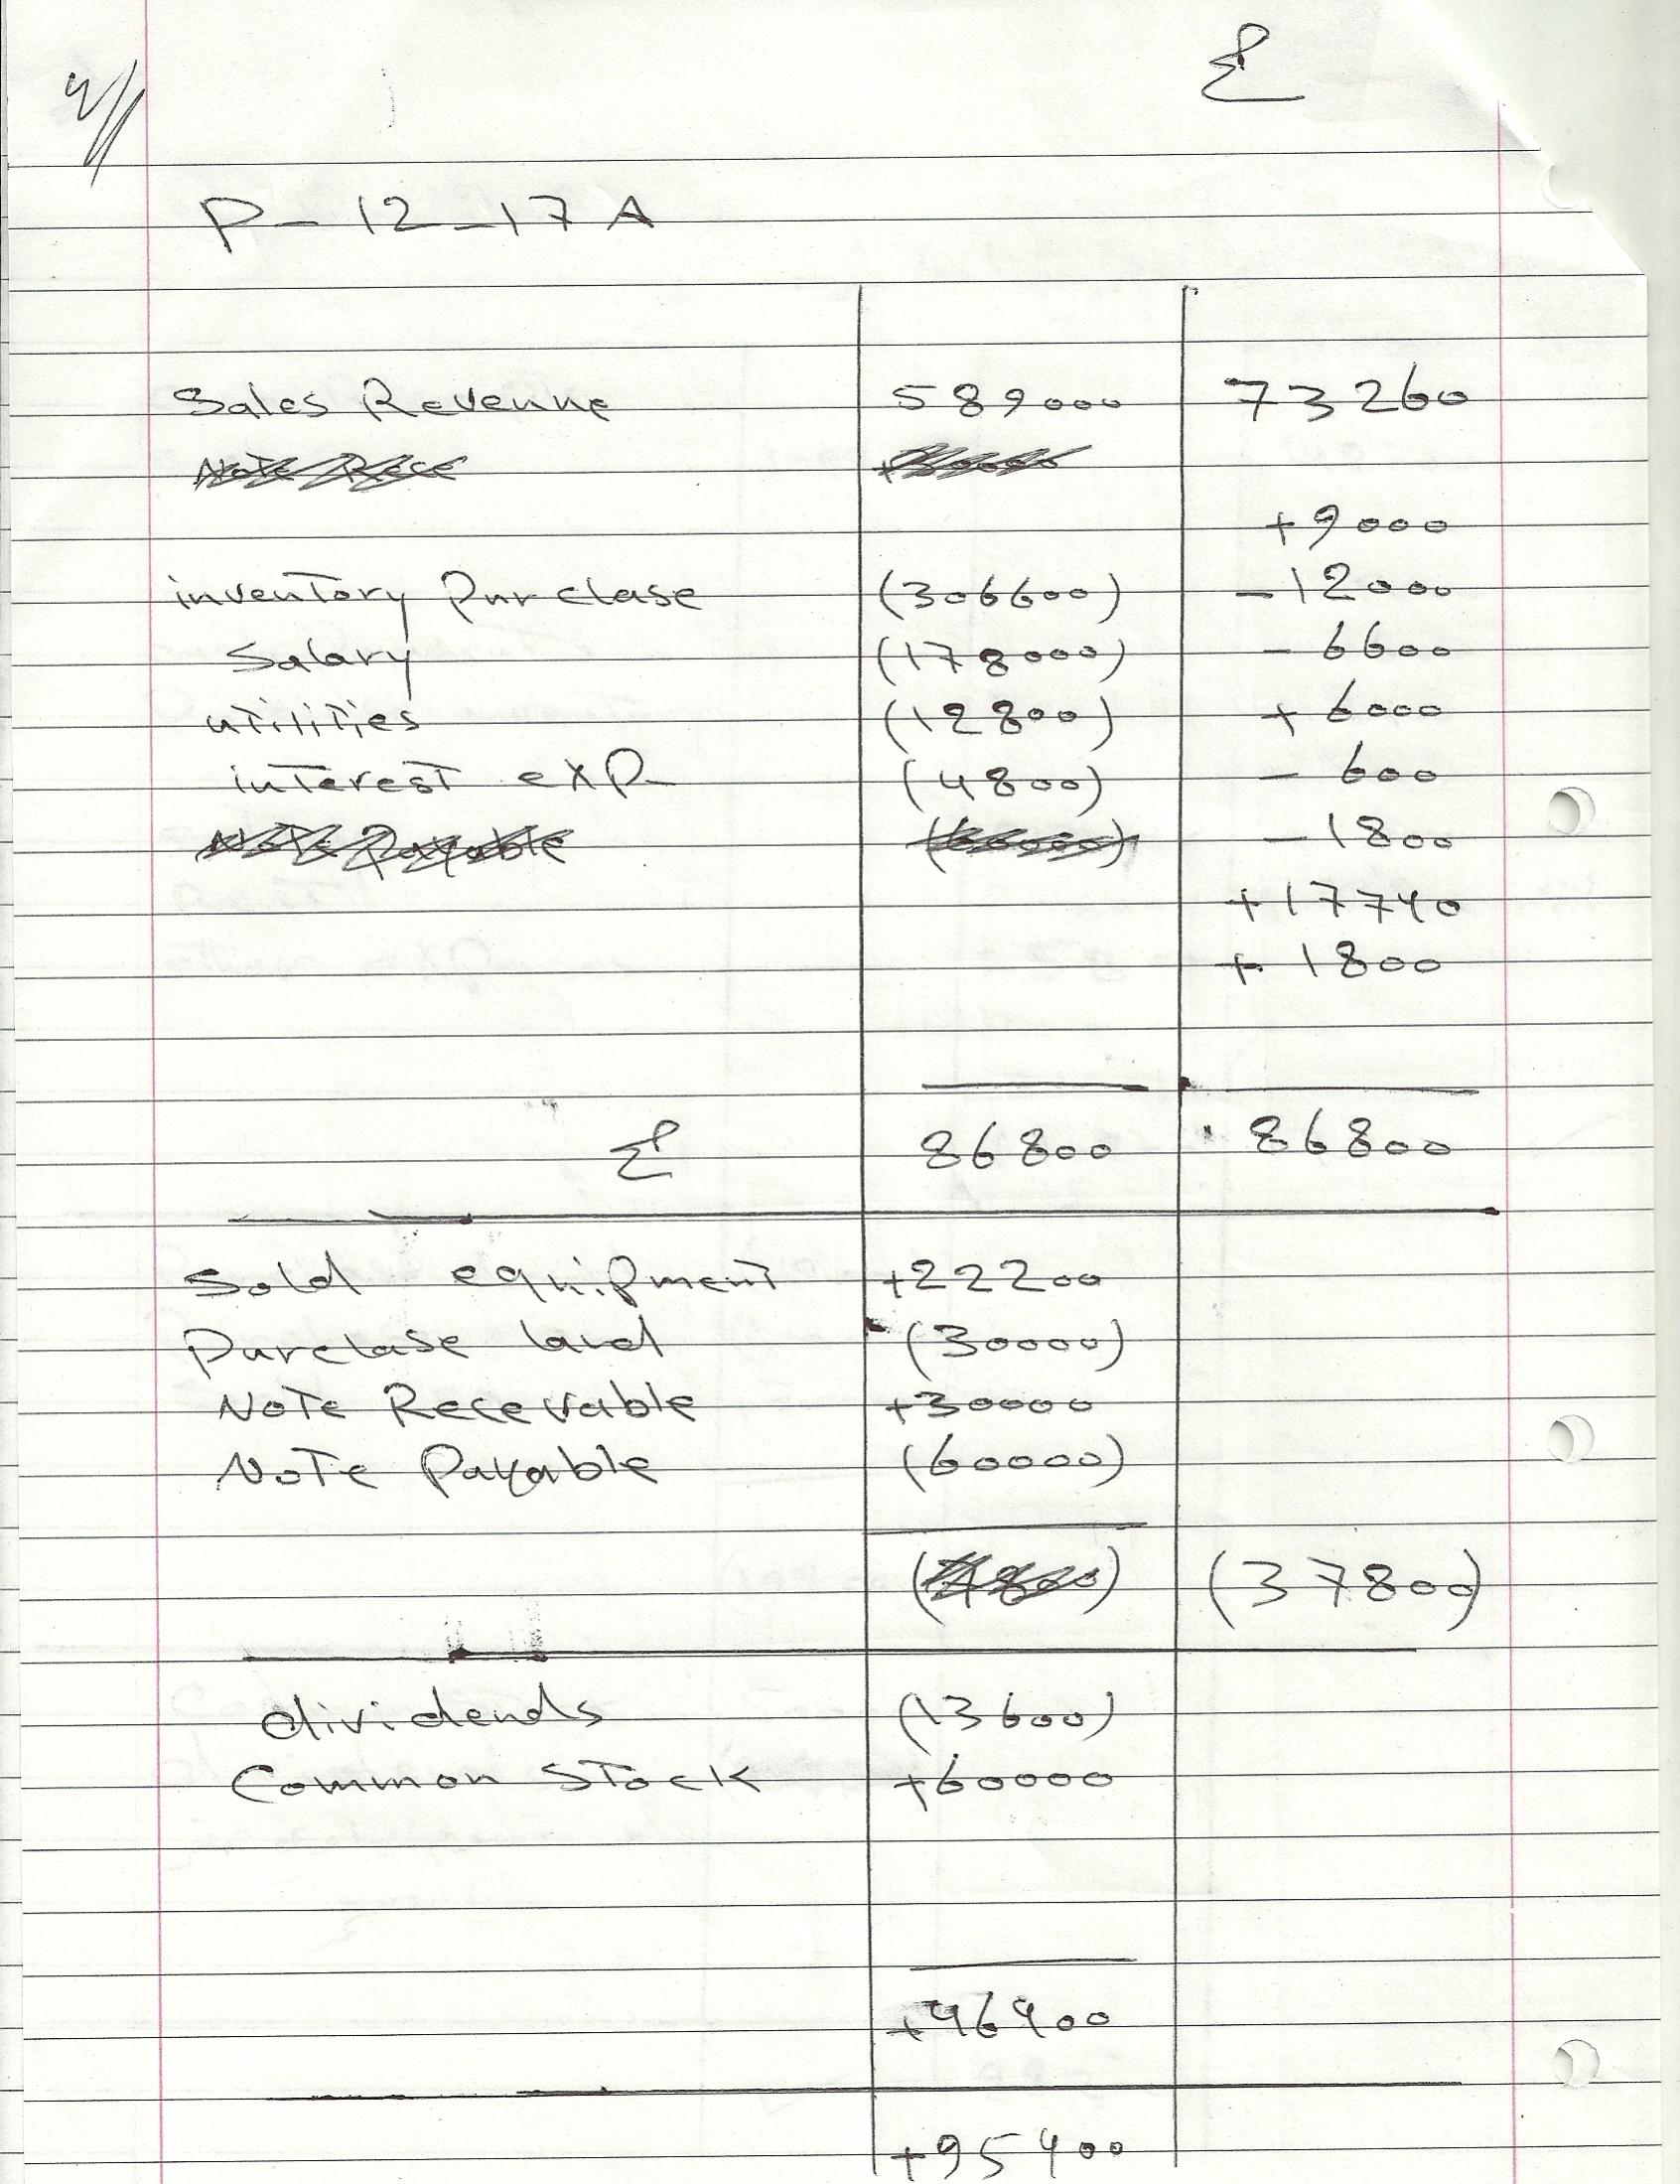 4//
Σ
P-12-17A
Sales Revenue 589000 73260
+9000
inventory Purclase (306600) -12000
Salary (178000) - 6600
utilities (12800) + 6000
interest exp (4800) - 600
-1800
+17740
+ 1800
Σ 86800 86800
Sold equipment +22200
Purclase land (30000)
Note Recevable +30000
Note Payable (60000)
(37800)
dividends (13600)
Common Stock +60000
+46400
+95400